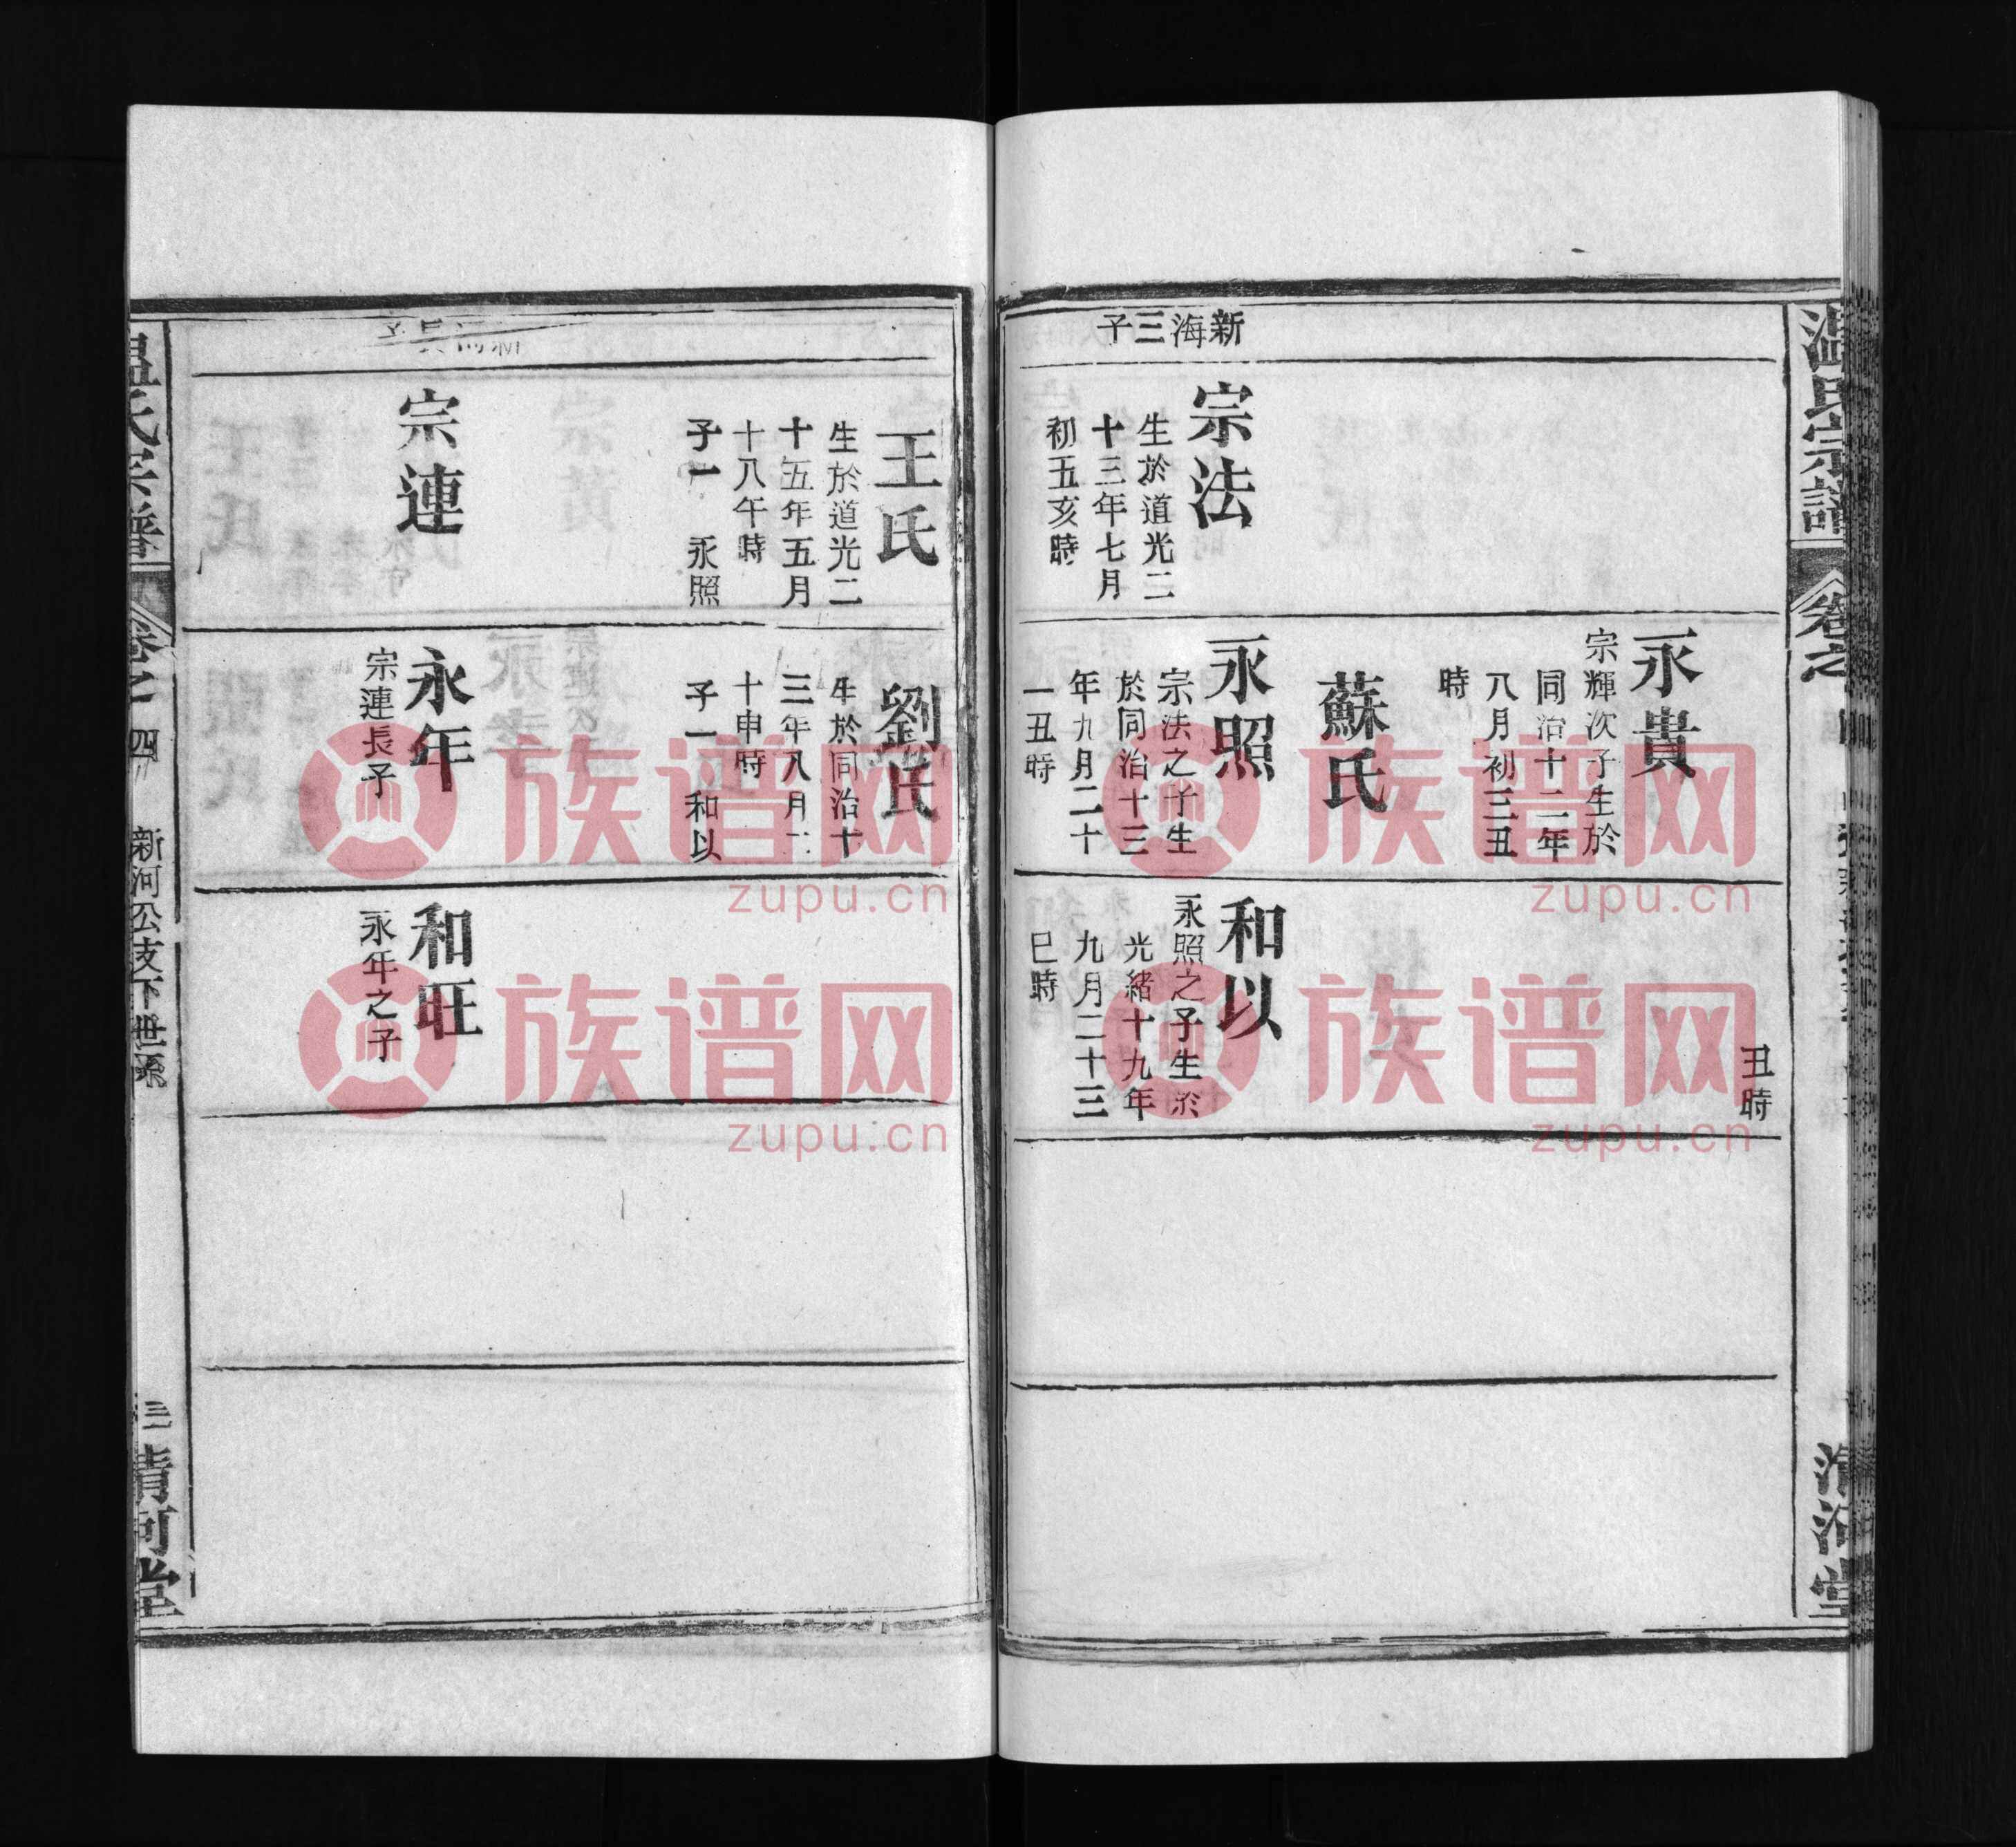 溫氏宗譜
卷之
清河堂
新海三子
宗法
生於道光二
十三年七月
初五亥時
永貴
宗輝次子生於
同治十二年
八月初三丑
時
蘇氏
永照
宗法之子生
於同治十三
年九月二十
一丑時
丑時
和以
永照之子生於
光緒十九年
九月二十三
巳時
王氏
生於道光二
十五年五月
十八午時
子一 永照
宗連
劉氏
生於同治十
三年八月二
十申時
子一 和以
永年
宗連長子
和旺
永年之子
溫氏宗譜
卷之四
新河公支下世系
三
清河堂
族谱网
zupu.cn
族谱网
zupu.cn
族谱网
zupu.cn
族谱网
zupu.cn